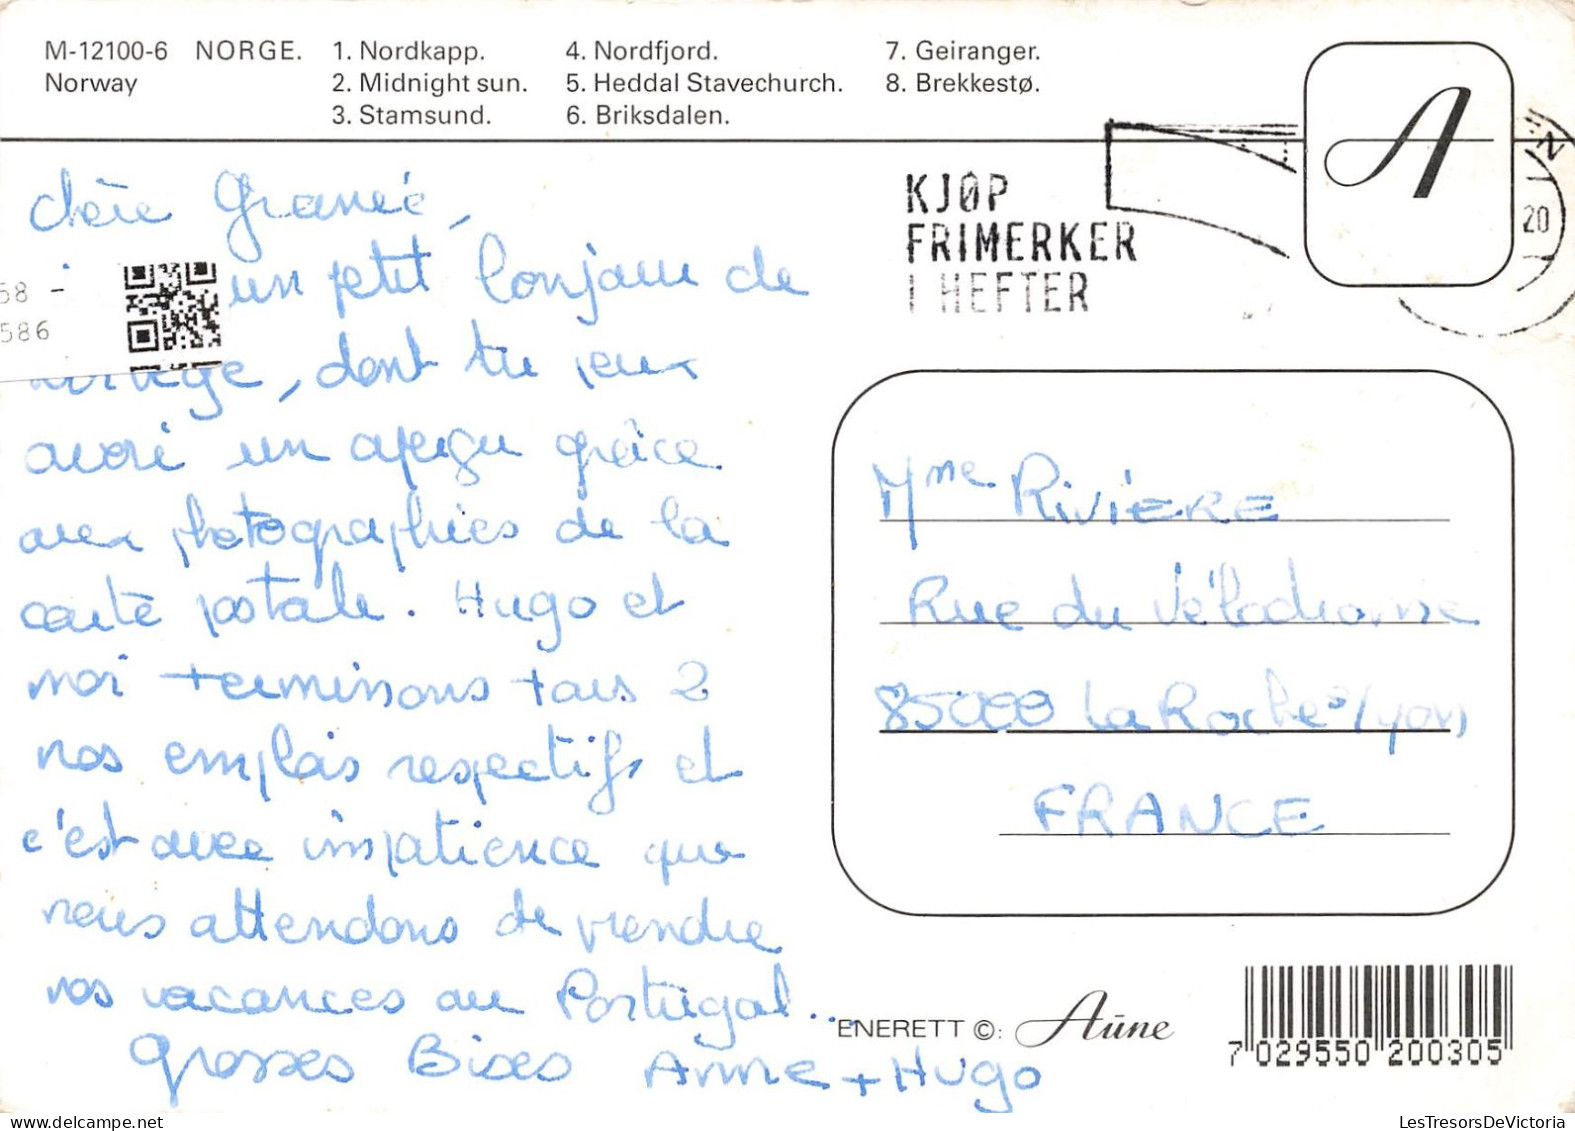 M-12100-6 NORGE.
Norway
1. Nordkapp.
2. Midnight sun.
3. Stamsund.
4. Nordfjord.
5. Heddal Stavechurch.
6. Briksdalen.
7. Geiranger.
8. Brekkestø.
A
KJØP
FRIMERKER
I HEFTER
20
58 -
586
Chère
un petit bonjour de
Norvège, dont tu peux
avoir un aperçu grâce
aux photographies de la
carte postale. Hugo et
moi terminons tous 2
nos emplois respectifs et
c'est avec impatience que
nous attendons de prendre
nos vacances au Portugal...
Grosses Bises Anne + Hugo
Mme RIVIERE
Rue du Vélodrome
85000 La Roche s/yon
FRANCE
ENERETT ©: Aūne
7 029550 200305
LesTresorsDeVictoria.com